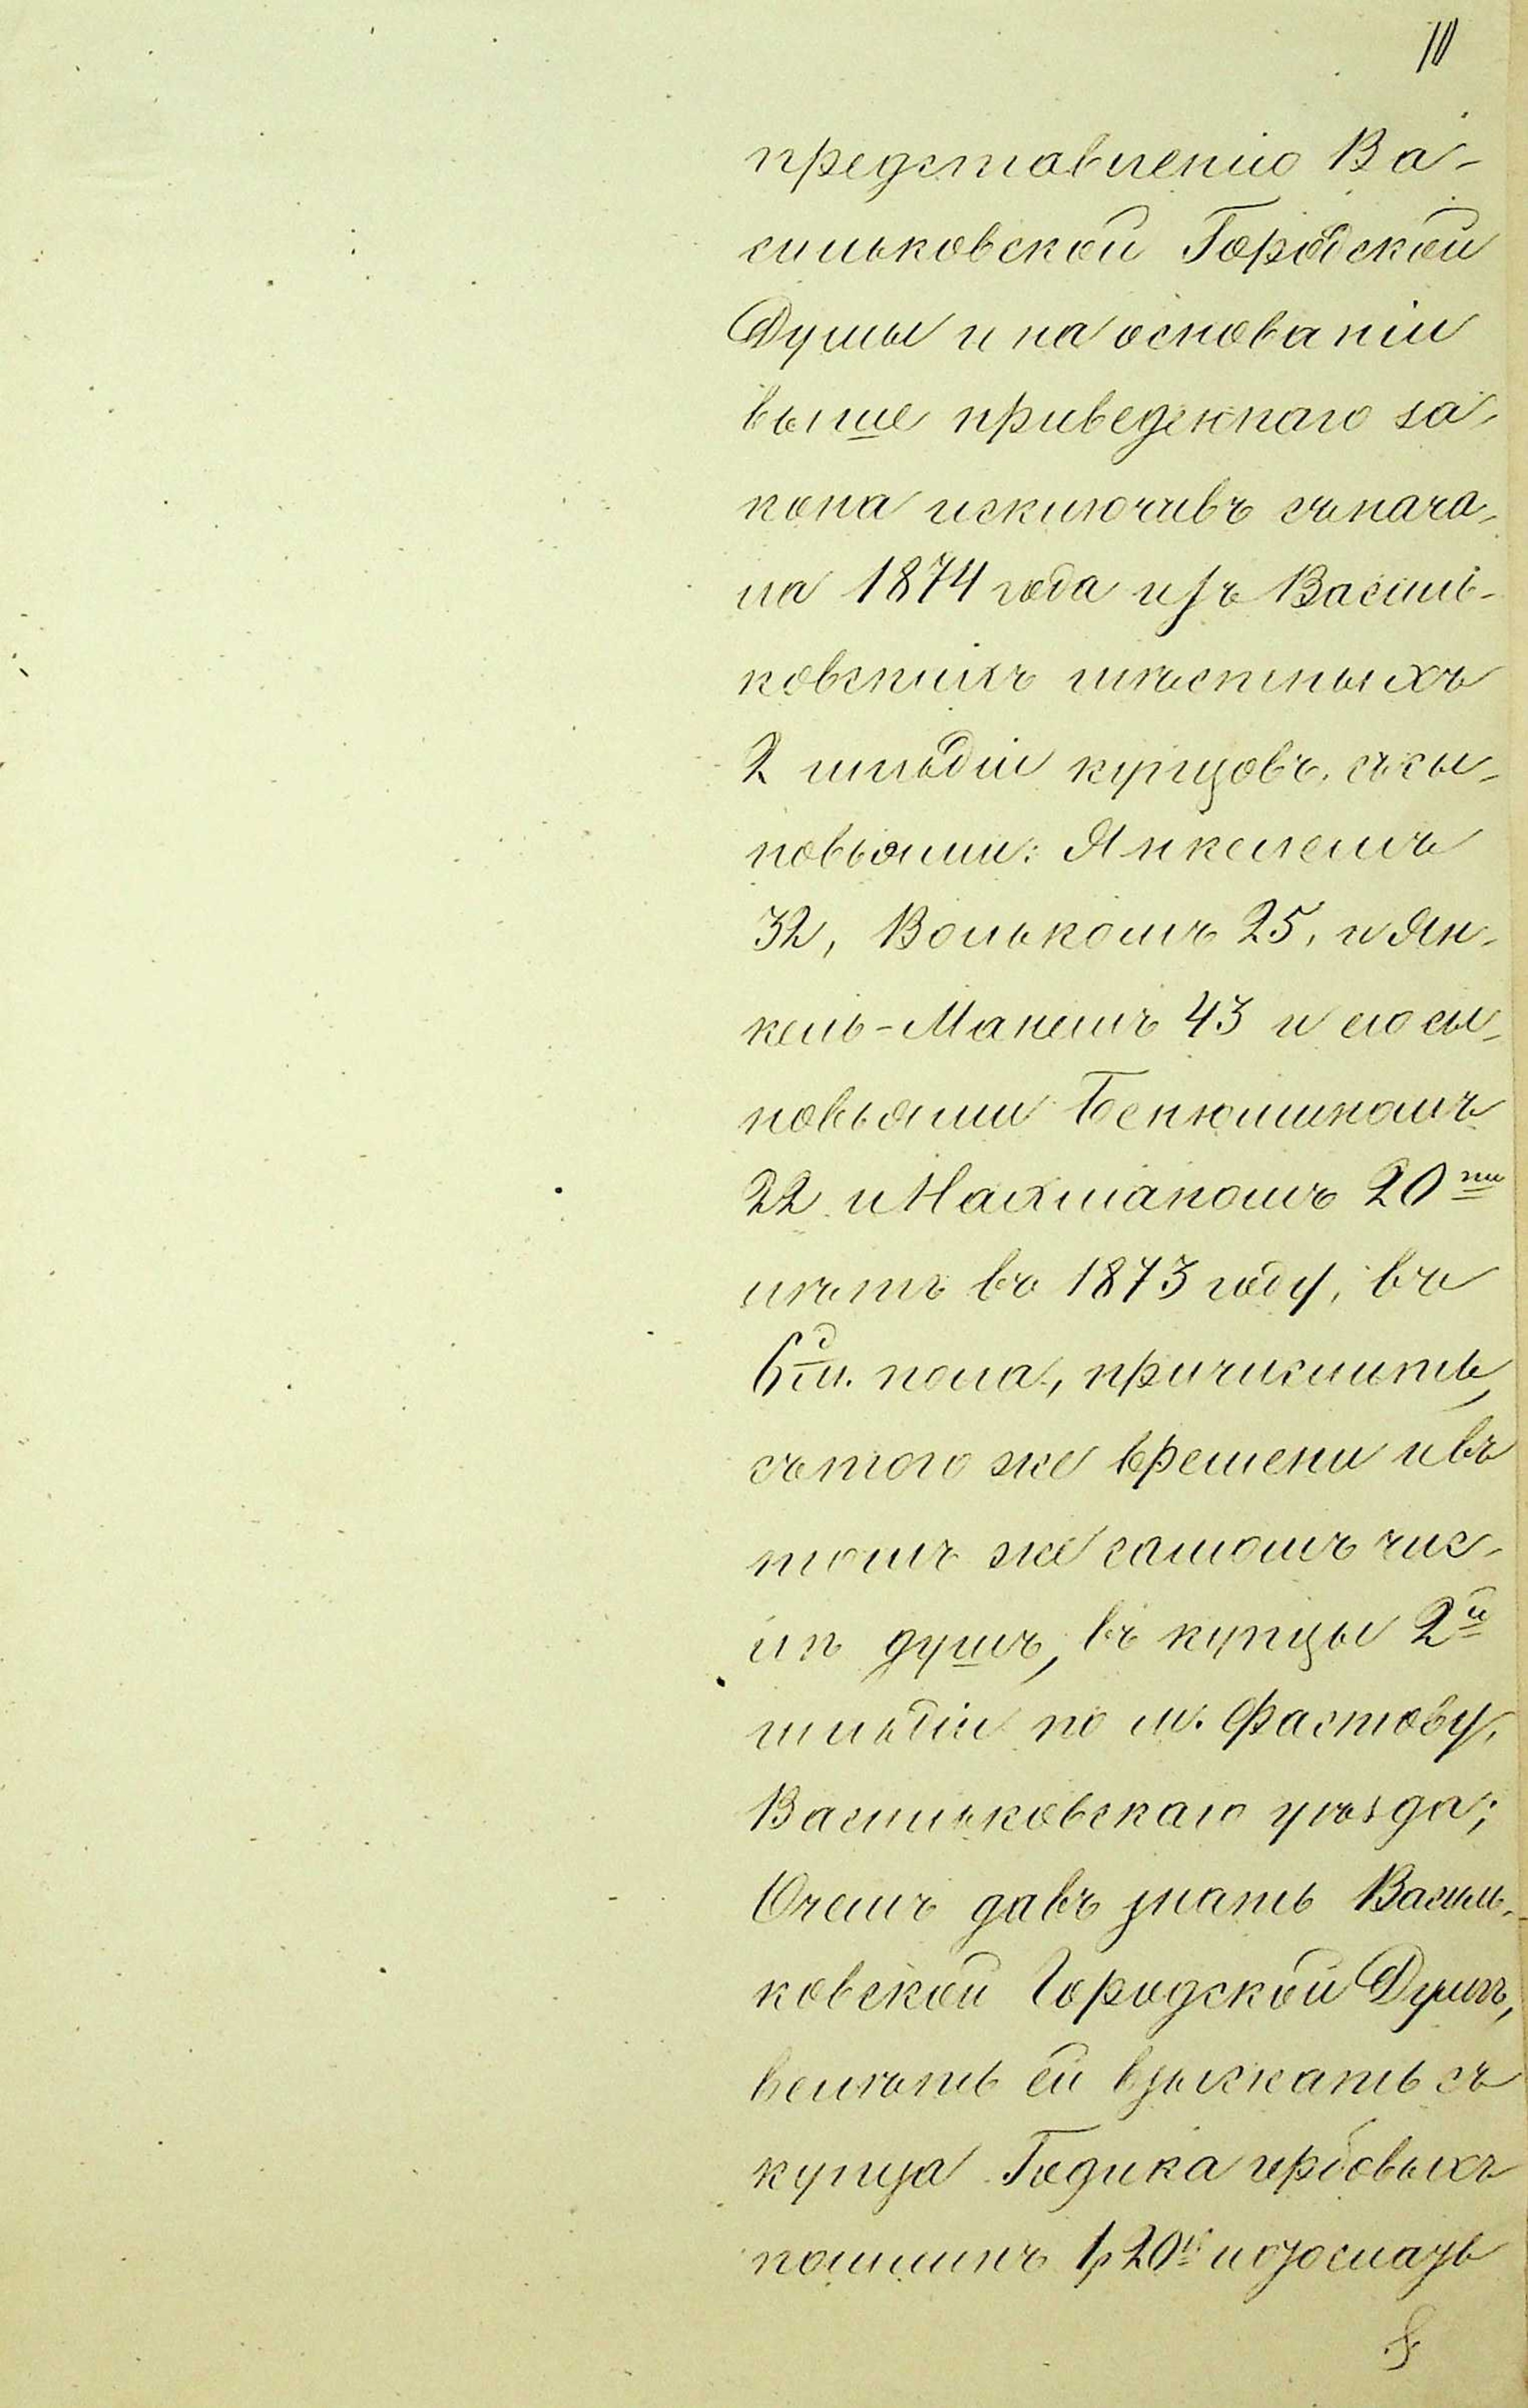 10
представленію Ва-
сильковской Городской
Думы и на основаніи
выше приведеннаго за-
кона исключивъ съ нача-
ла 1874 года изъ Василь-
ковскихъ мѣстныхъ
2 гильдіи купцовъ, съ сы-
новьями: Янкелемъ
32, Волькомъ 25, и Ян-
кель-Манемъ 43 и его сы-
новьями Бенюминомъ
22 и Нахманомъ 20ти
лѣтъ въ 1873 году, въ
6 д. м. пола, причислить,
съ того же времени и въ
томъ же самомъ чис-
лѣ душъ, въ купцы 2й
гильдіи по м. Фастову,
Васильковскаго уѣзда;
О чемъ давъ знать Василь-
ковской Городской Думѣ,
велѣть ей взыскать съ
купца Годика гербовыхъ
пошлинъ 1р 20к